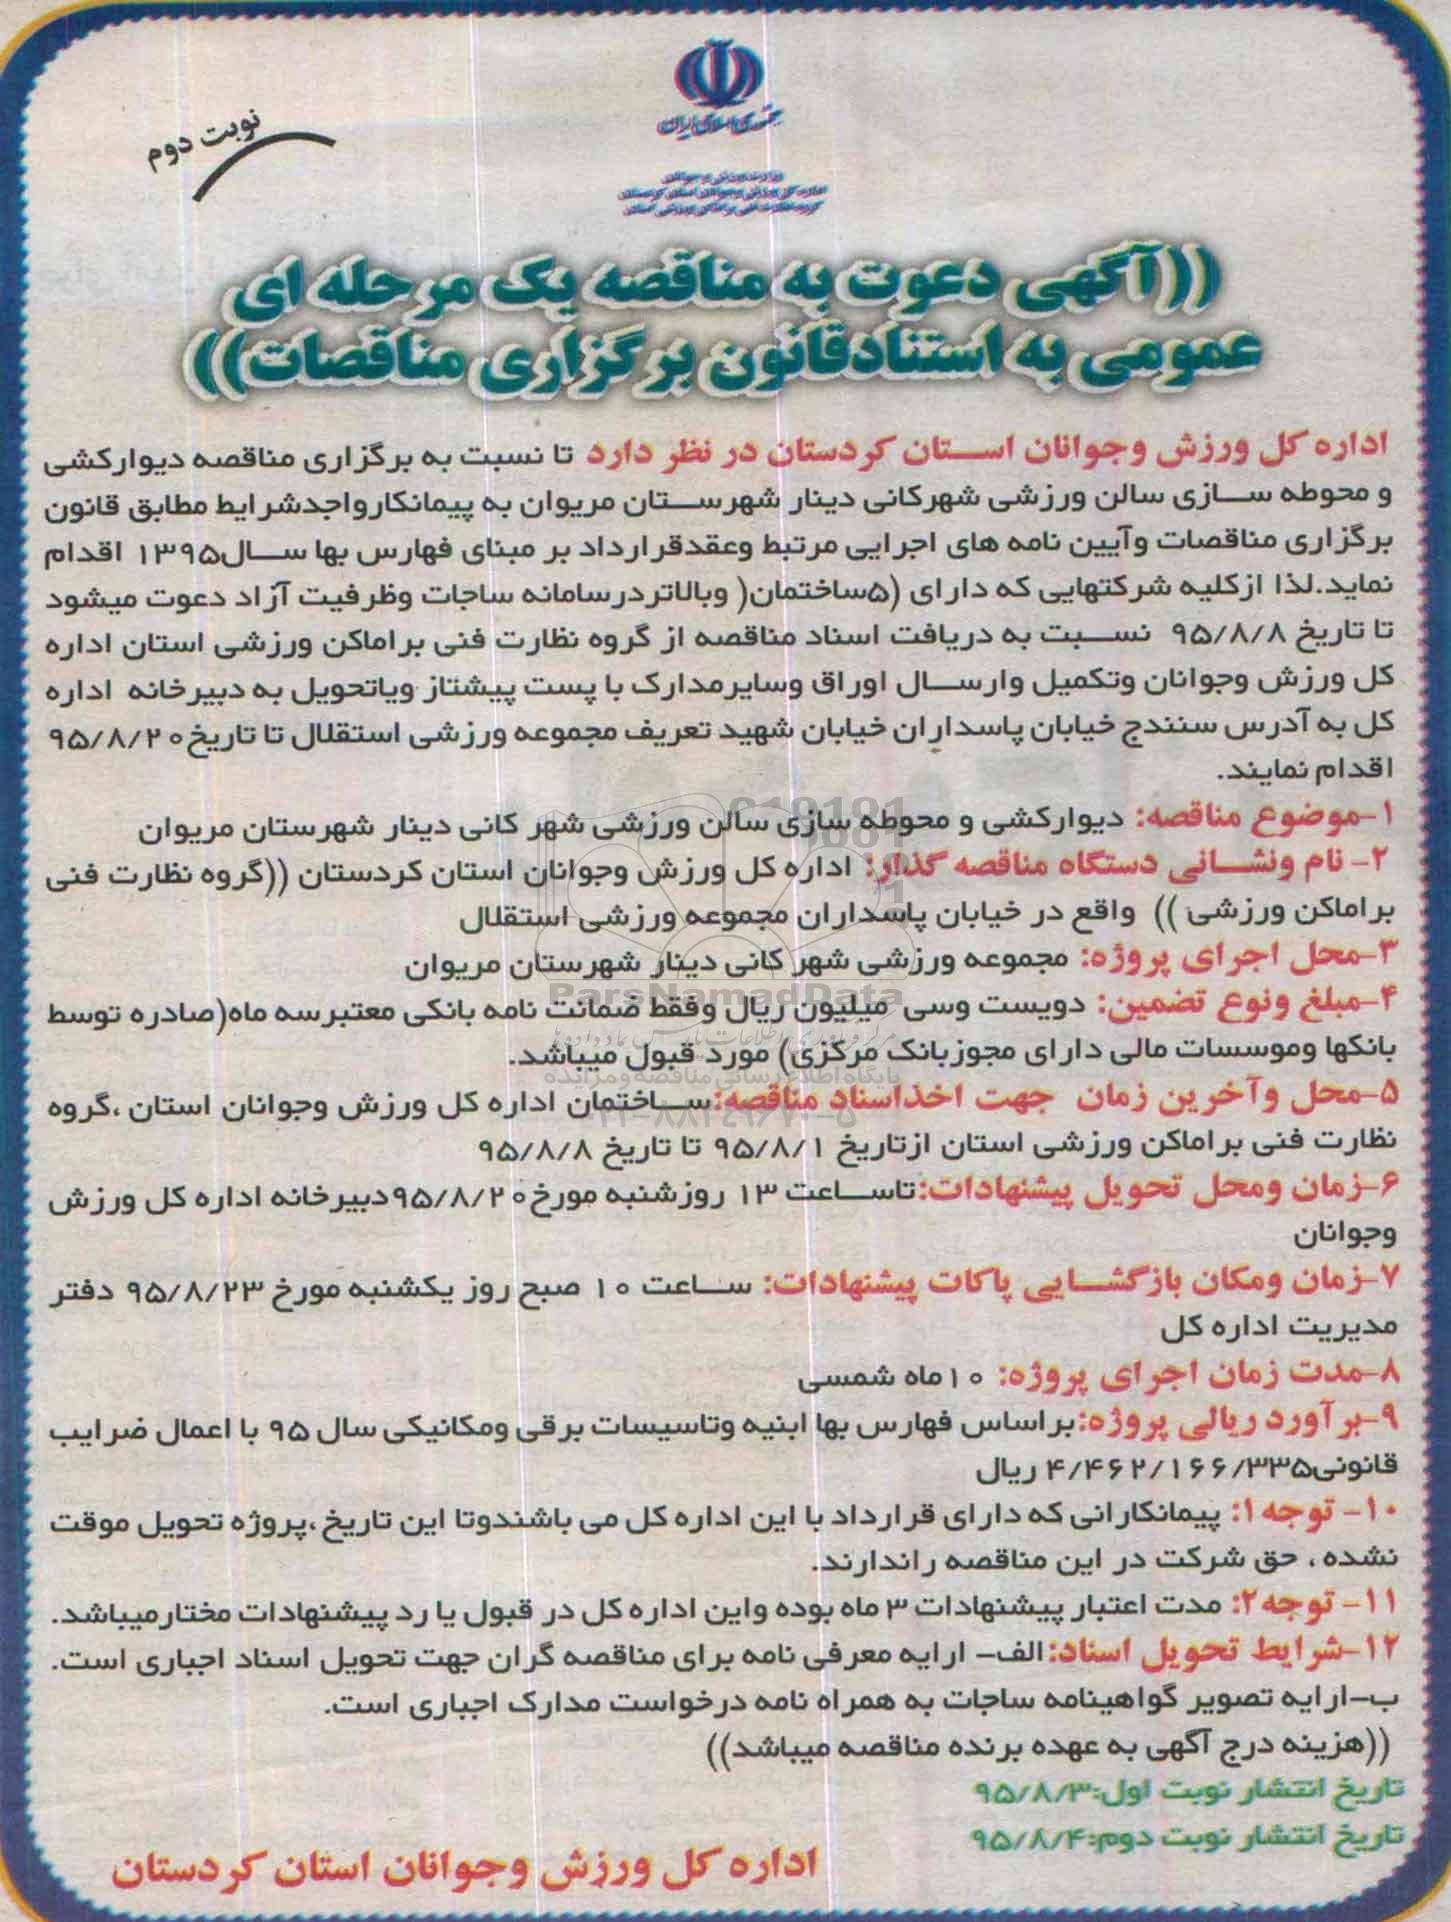 جمهوری اسلامی ایران
نوبت دوم
وزارت ورزش و جوانان
اداره کل ورزش و جوانان استان کردستان
گروه نظارت فنی بر اماکن ورزشی استان
((آگهی دعوت به مناقصه یک مرحله ای
عمومی به استنادقانون برگزاری مناقصات))
اداره کل ورزش وجوانان استان کردستان در نظر دارد تا نسبت به برگزاری مناقصه دیوارکشی
و محوطه سازی سالن ورزشی شهرکانی دینار شهرستان مریوان به پیمانکارواجدشرایط مطابق قانون
برگزاری مناقصات وآیین نامه های اجرایی مرتبط وعقدقرارداد بر مبنای فهارس بها سال۱۳۹۵ اقدام
نماید.لذا ازکلیه شرکتهایی که دارای (۵ساختمان( وبالاتردرسامانه ساجات وظرفیت آزاد دعوت میشود
تا تاریخ ۹۵/۸/۸ نسبت به دریافت اسناد مناقصه از گروه نظارت فنی براماکن ورزشی استان اداره
کل ورزش وجوانان وتکمیل وارسال اوراق وسایرمدارک با پست پیشتاز ویاتحویل به دبیرخانه اداره
کل به آدرس سنندج خیابان پاسداران خیابان شهید تعریف مجموعه ورزشی استقلال تا تاریخ۹۵/۸/۲۰
اقدام نمایند.
۱-موضوع مناقصه: دیوارکشی و محوطه سازی سالن ورزشی شهر کانی دینار شهرستان مریوان
۲- نام ونشانی دستگاه مناقصه گذار: اداره کل ورزش وجوانان استان کردستان ((گروه نظارت فنی
براماکن ورزشی )) واقع در خیابان پاسداران مجموعه ورزشی استقلال
۳-محل اجرای پروژه: مجموعه ورزشی شهر کانی دینار شهرستان مریوان
ParsNamadData
۴-مبلغ ونوع تضمین: دویست وسی میلیون ریال وفقط ضمانت نامه بانکی معتبرسه ماه(صادره توسط
بانکها وموسسات مالی دارای مجوزبانک مرکزی) مورد قبول میباشد.
پایگاه اطلاع رسانی مناقصه ومزایده
۵-محل وآخرین زمان جهت اخذاسناد مناقصه:ساختمان اداره کل ورزش وجوانان استان ،گروه
نظارت فنی براماکن ورزشی استان ازتاریخ ۹۵/۸/۱ تا تاریخ ۹۵/۸/۸
۶-زمان ومحل تحویل پیشنهادات:تاساعت ۱۳ روزشنبه مورخ۹۵/۸/۲۰دبیرخانه اداره کل ورزش
وجوانان
۷-زمان ومکان بازگشایی پاکات پیشنهادات: ساعت ۱۰ صبح روز یکشنبه مورخ ۹۵/۸/۲۳ دفتر
مدیریت اداره کل
۸-مدت زمان اجرای پروژه: ۱۰ماه شمسی
۹-برآورد ریالی پروژه:براساس فهارس بها ابنیه وتاسیسات برقی ومکانیکی سال ۹۵ با اعمال ضرایب
قانونی۴/۴۶۲/۱۶۶/۳۳۵ ریال
۱۰- توجه۱: پیمانکارانی که دارای قرارداد با این اداره کل می باشندوتا این تاریخ ،پروژه تحویل موقت
نشده ، حق شرکت در این مناقصه راندارند.
۱۱- توجه۲: مدت اعتبار پیشنهادات ۳ ماه بوده واین اداره کل در قبول یا رد پیشنهادات مختارمیباشد.
۱۲-شرایط تحویل اسناد:الف- ارایه معرفی نامه برای مناقصه گران جهت تحویل اسناد اجباری است.
ب-ارایه تصویر گواهینامه ساجات به همراه نامه درخواست مدارک اجباری است.
((هزینه درج آگهی به عهده برنده مناقصه میباشد))
تاریخ انتشار نوبت اول:۹۵/۸/۳
تاریخ انتشار نوبت دوم:۹۵/۸/۴
اداره کل ورزش وجوانان استان کردستان